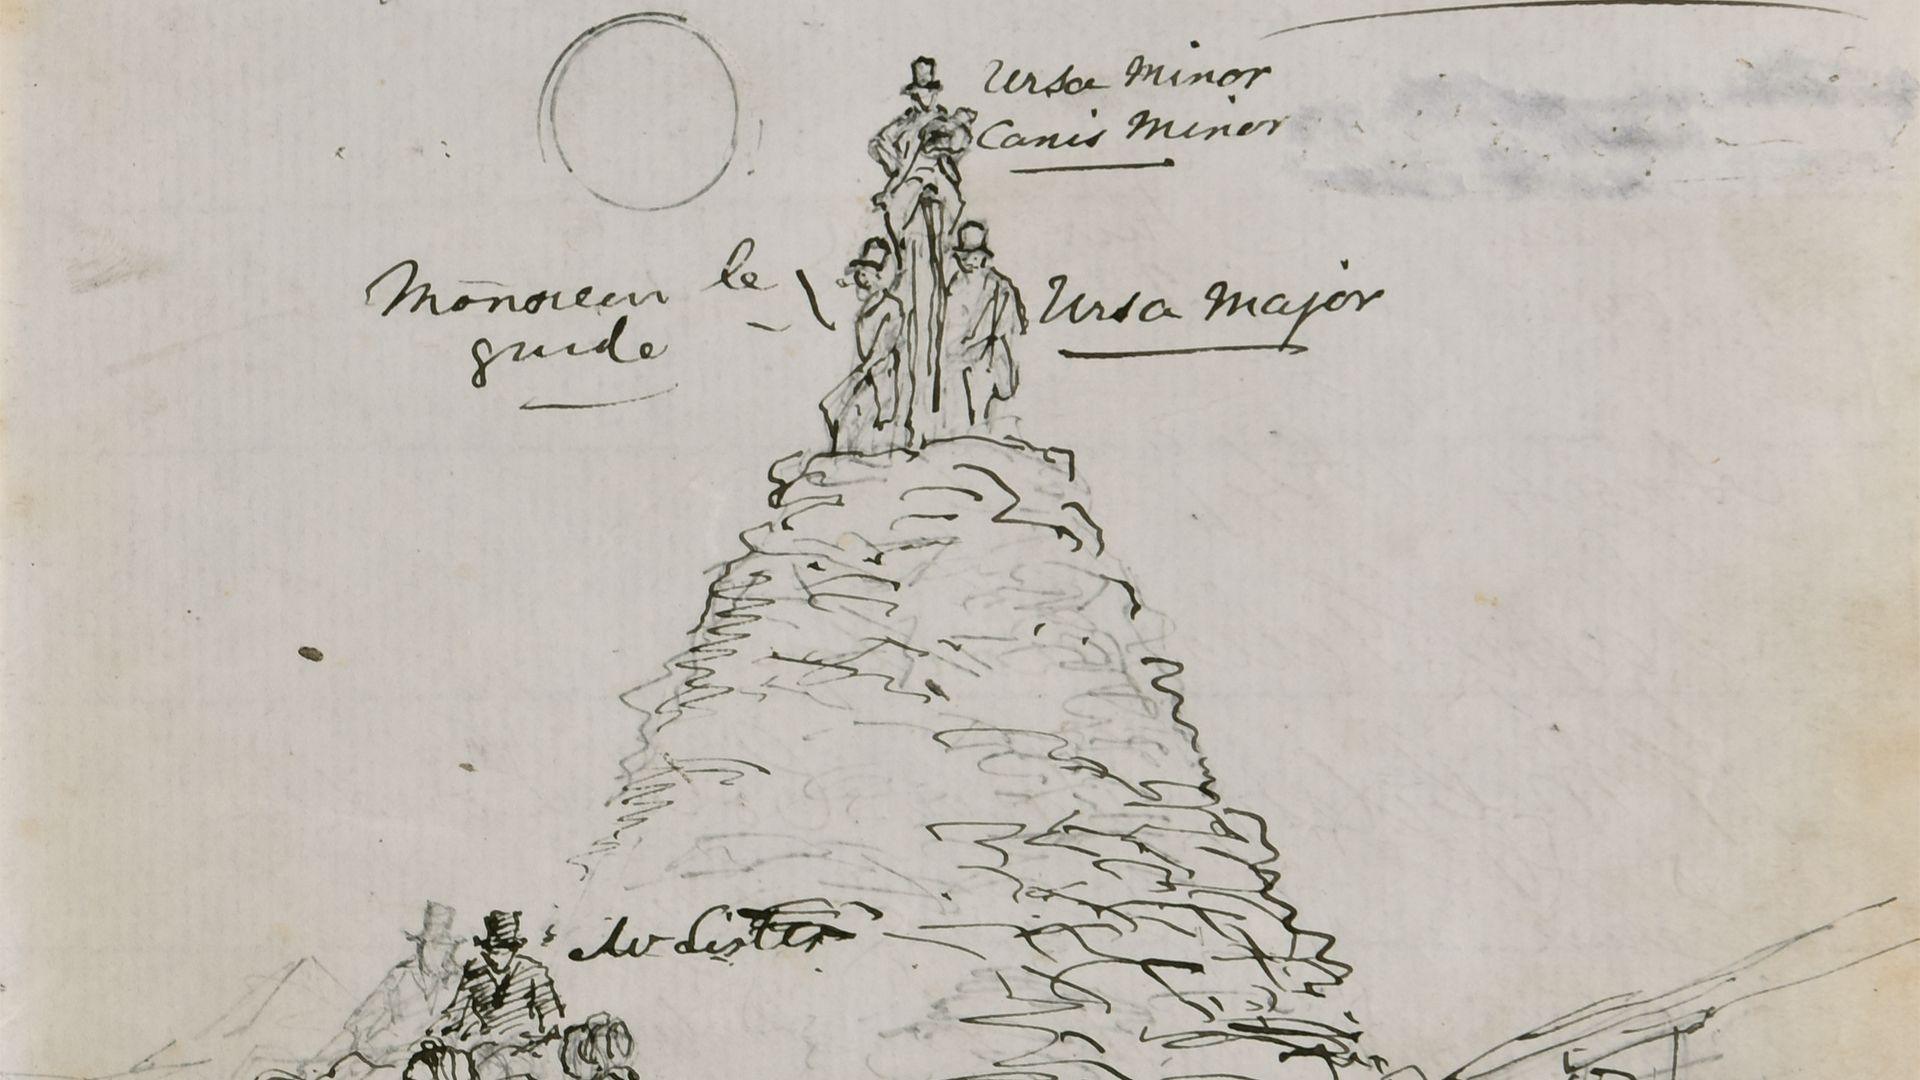 Ursa Minor
Canis Minor
Monsieur le
guide
Ursa Major